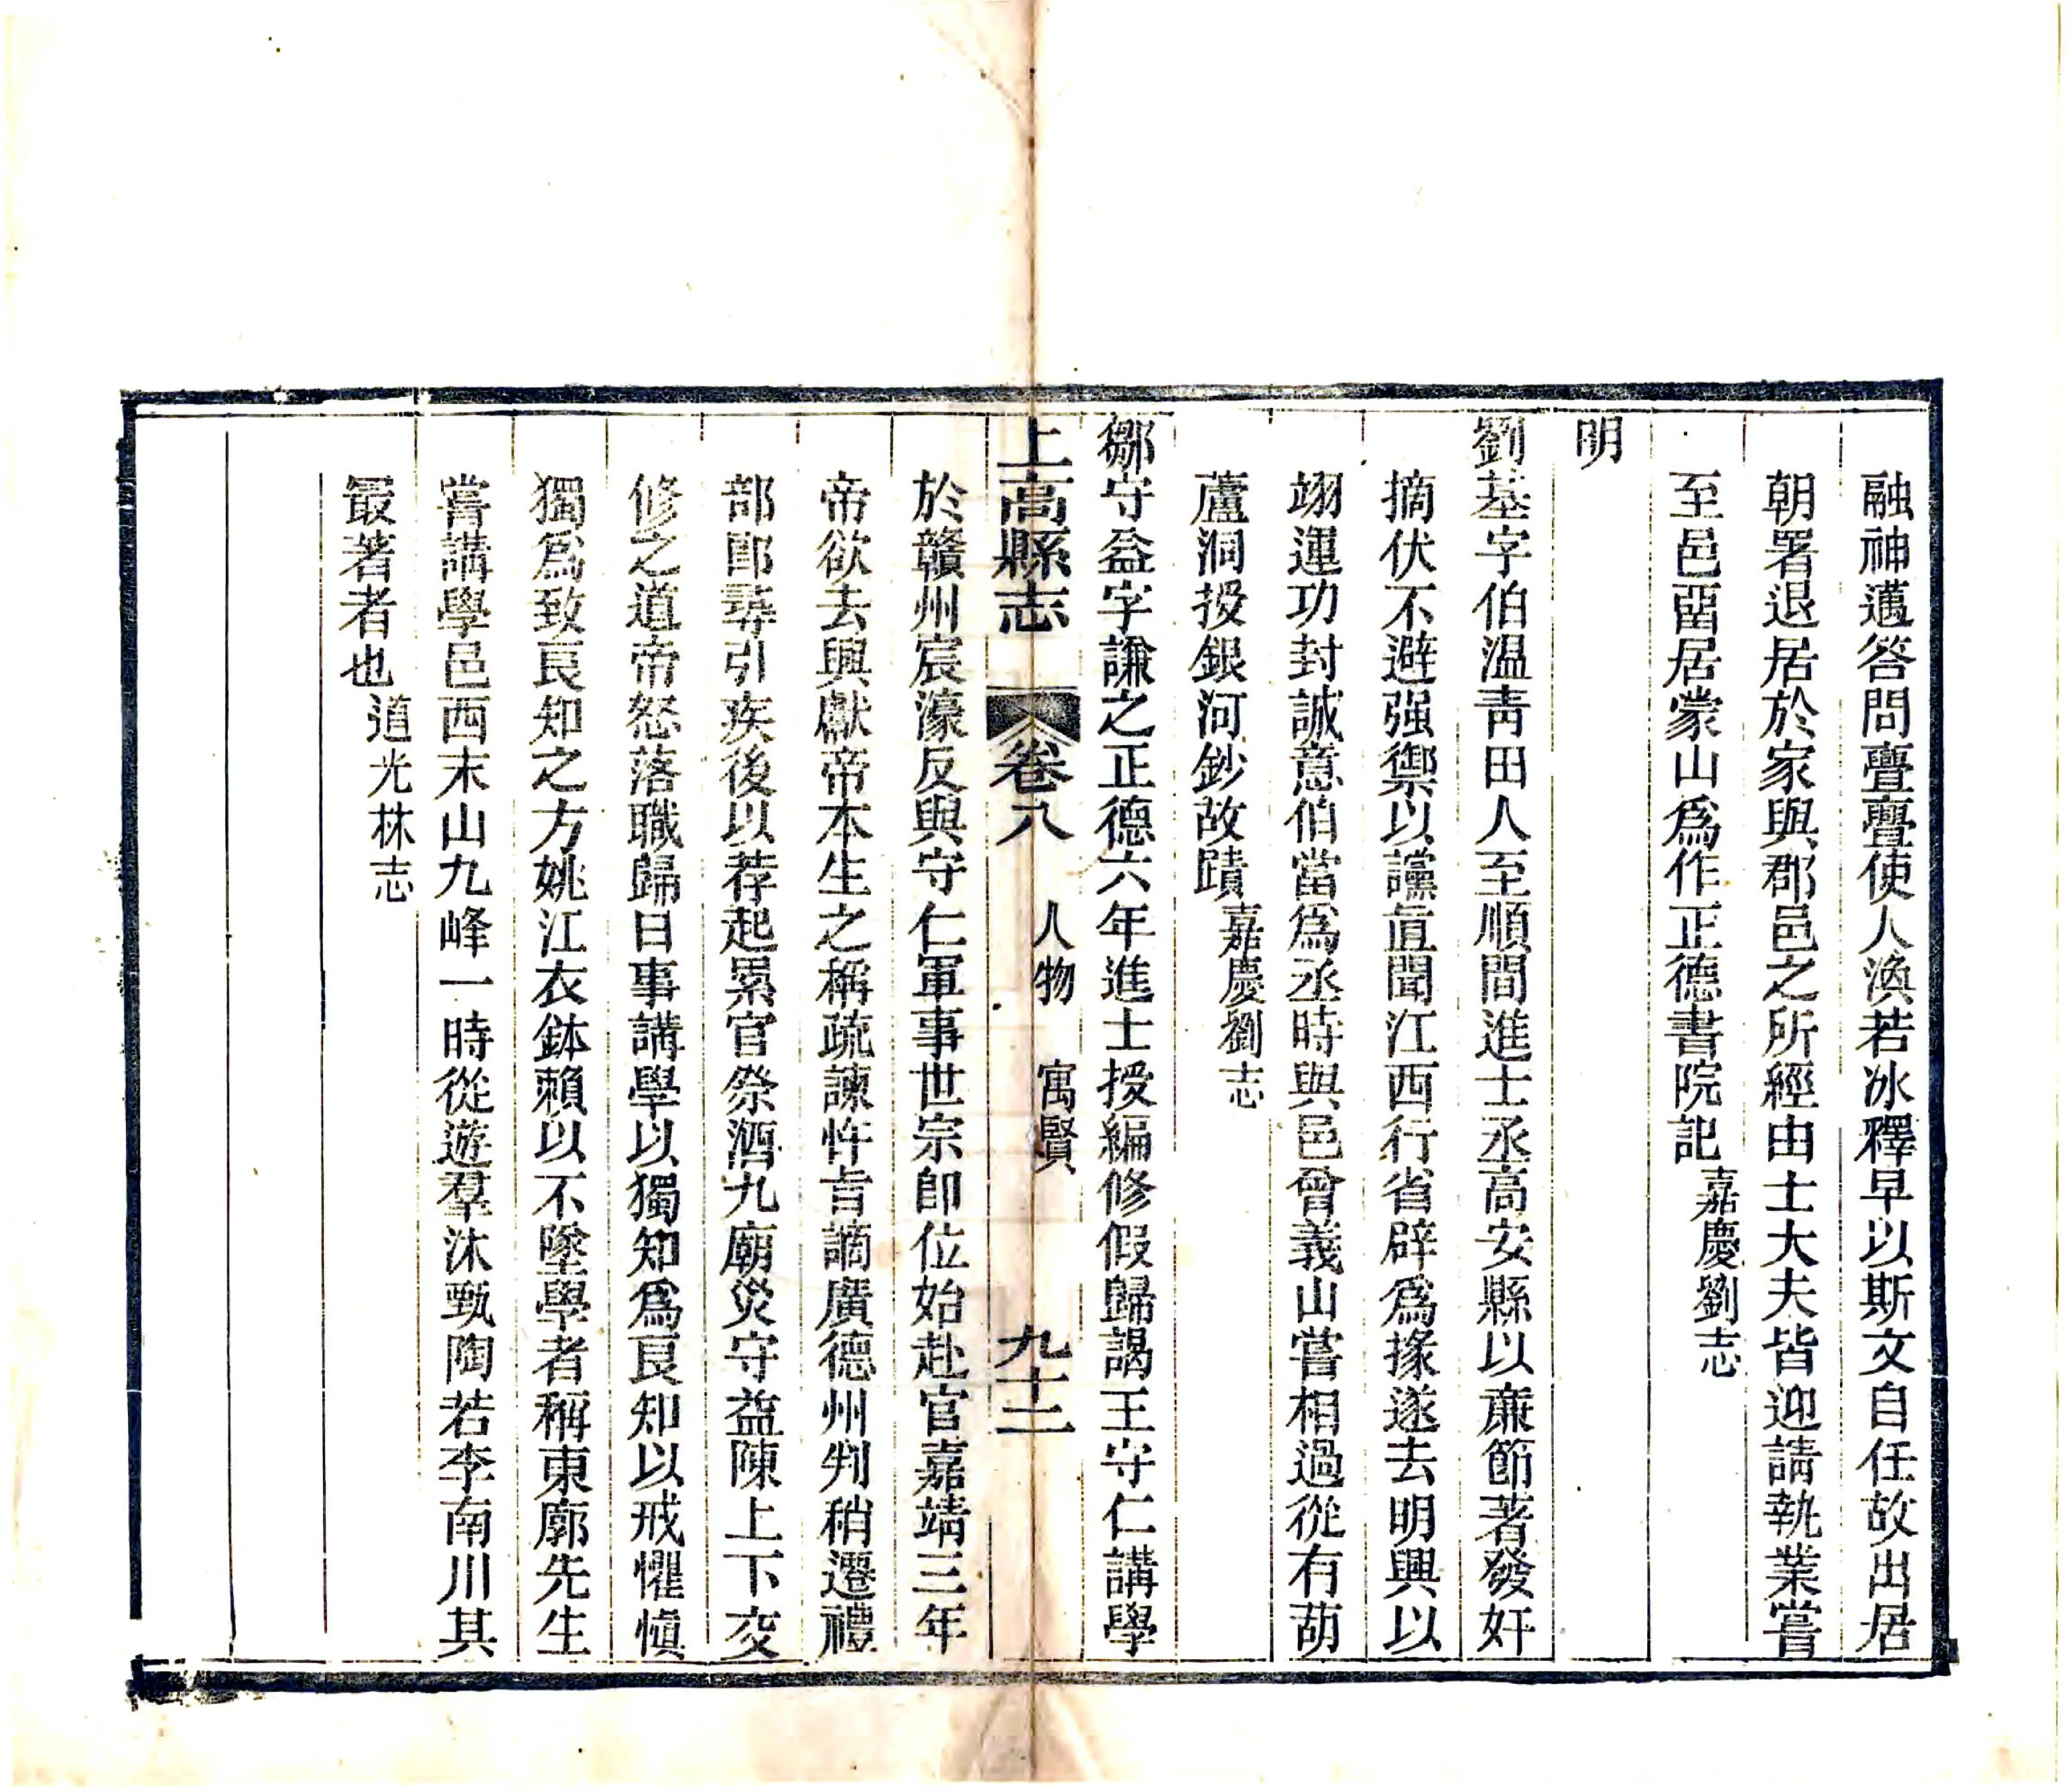 融神邁答問亹亹使人渙若冰釋早以斯文自任故出居
朝署退居於家與郡邑之所經由士大夫皆迎請執業嘗
至邑畱居蒙山爲作正德書院記嘉慶劉志
明
劉基字伯溫青田人至順間進士丞高安縣以亷節著發奸
摘伏不避强禦以讜直聞江西行省辟爲掾遂去明興以
翊運功封誠意伯當爲丞時與邑曾義山嘗相過從有葫
蘆洞授銀河鈔故蹟嘉慶劉志
鄒守益字謙之正德六年進士授編修假歸謁王守仁講學
上高縣志 卷八 人物 寓賢 九十二
於贛州宸濠反與守仁軍事世宗卽位始赴官嘉靖三年
帝欲去興獻帝本生之稱疏諫忤旨謫廣德州判稍遷禮
部郎尋引疾後以荐起累官祭酒九廟災守益陳上下交
修之道帝怒落職歸日事講學以獨知爲良知以戒懼愼
獨爲致良知之方姚江衣鉢賴以不墜學者稱東廓先生
嘗講學邑西末山九峰一時從遊羣沐甄陶若李南川其
最著者也道光林志